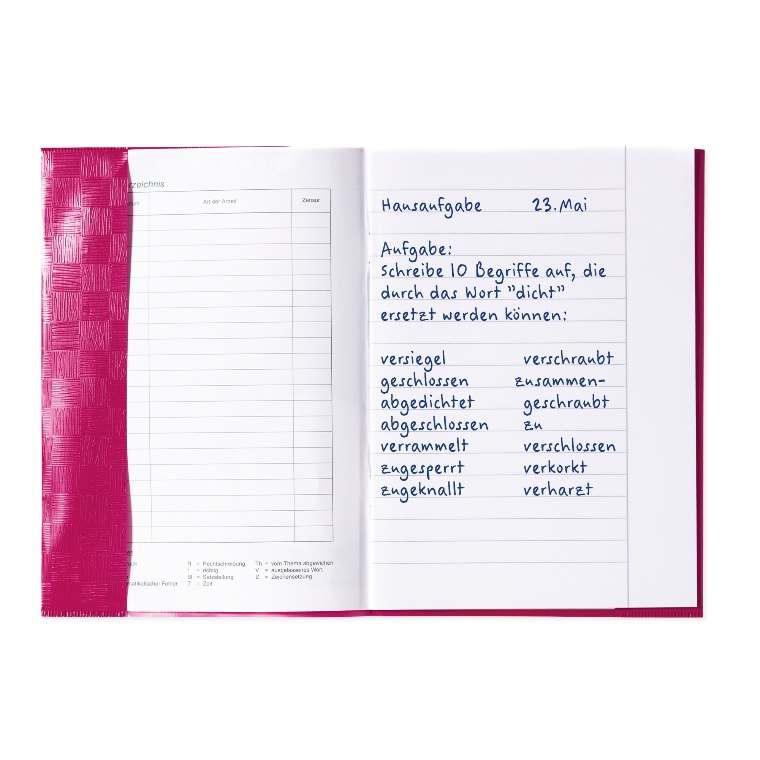 rzeichnis
Art der Arbeit Zensur
R = Rechtschreibung Th = vom Thema abgewichen
r = richtig V = ausgelassenes Wort
St = Satzstellung Z = Zeichensetzung
matikalischer Fehler T = Zeit
Hausaufgabe 23. Mai
Aufgabe:
Schreibe 10 Begriffe auf, die
durch das Wort "dicht"
ersetzt werden können:
versiegel verschraubt
geschlossen zusammen-
abgedichtet geschraubt
abgeschlossen zu
verrammelt verschlossen
zugesperrt verkorkt
zugeknallt verharzt